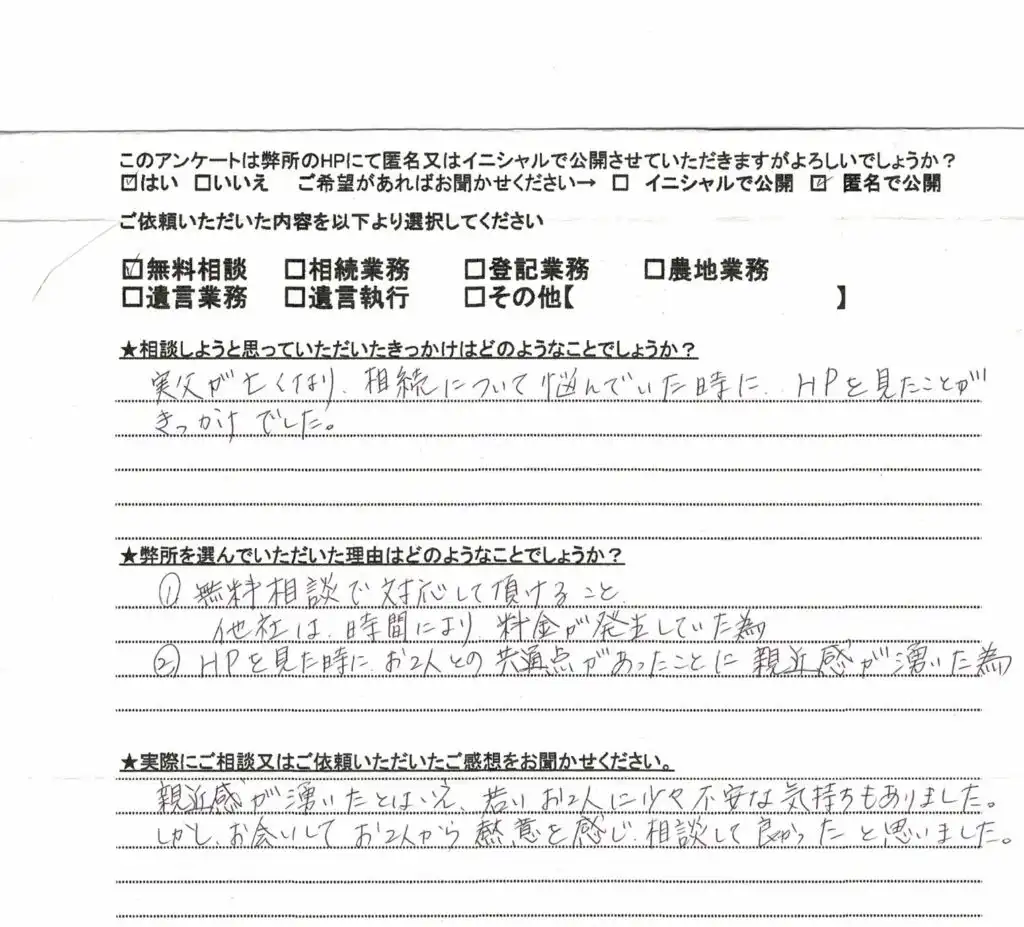 このアンケートは弊所のHPにて匿名又はイニシャルで公開させていただきますがよろしいでしょうか？
☑はい □いいえ ご希望があればお聞かせください→ □ イニシャルで公開 ☑ 匿名で公開
ご依頼いただいた内容を以下より選択してください
☑無料相談 □相続業務 □登記業務 □農地業務
□遺言業務 □遺言執行 □その他【 】
★相談しようと思っていただいたきっかけはどのようなことでしょうか？
実父が亡くなり、相続について悩んでいた時に、HPを見たことが
きっかけでした。
★弊所を選んでいただいた理由はどのようなことでしょうか？
① 無料相談で対応して頂けること、
他社は、時間により、料金が発生していた為
② HPを見た時に、お2人との共通点があったことに親近感が湧いた為
★実際にご相談又はご依頼いただいたご感想をお聞かせください。
親近感が湧いたとはいえ、若いお2人に少々不安な気持ちもありました。
しかし、お会いしてお2人から熱意を感じ、相談して良かったと思いました。